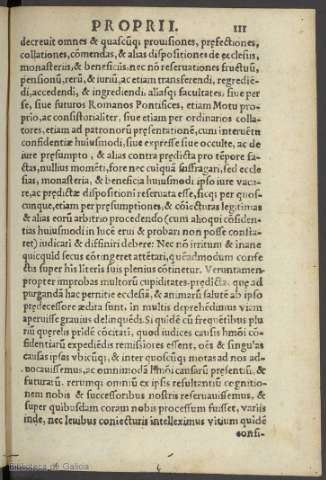 PROPRII. III
decreuit omnes & quascũq; prouisiones, pręfectiones,
collationes, cõmendas, & alias dispositiones de ecclesiis,
monasteriis, & beneficiis, nec nõ reseruationes fructuũ,
pensionũ, rerũ, & iuriũ, ac etiam transferendi, regrediẽ
di, accedendi, & ingrediendi, aliasq; facultates, siue per
se, siue futuros Romanos Pontifices, etiam Motu pro-
prio, ac consistorialiter, siue etiam per ordinarios colla-
tores, etiam ad patronorũ presentationẽ, cum interuẽtu
confidentiæ huiusmodi, siue expresse siue occulte, ac de
iure presumpto, & alias contra prędicta pro tẽpore fa-
ctas, nullius momẽti, fore nec cuiquã suffragari, sed eccle
sias, monasteria, & beneficia huiusmodi ipso iure vaca-
re, ac prędictæ dispositioni reseruata esse, sicq; per quos-
cunque, etiam per presumptiones, & cõiecturas legitimas
& alias eorũ arbitrio procedendo (cum alioqui cõfiden-
tias huiusmodi in lucẽ erui & probari non posse consta-
ret) iudicari & diffiniri debere: Nec nõ irritum & inane
quicquid secus cõtingeret attẽtari, quẽadmodum confe-
ctis super his literis suis plenius cõtinetur. Veruntamen
propter improbas multorũ cupiditates prędicta, que ad
purgandã hac pernitie ecclesiã, & animarũ salutẽ ab ipso
prędecessore ædita sunt, in multis deprehẽdimus viam
aperuisse grauius delinquẽdi. Si quidẽ cũ frequẽtibus plu
riũ querelis pridẽ cõcitati, quod iudices causis hm̃õi cõ-
fidentiarũ expediẽdis remissiores essent, oẽs & singulas
causas ipsas vbicũq;, & inter quoscũq; motas ad nos ad-
uocauissemus, ac omnimodã hm̃õi causarũ presentiũ, &
futurarũ, rerumq; omniũ ex ipsis resultantiũ cognitio-
nem nobis & successoribus nostris reseruauissemus, &
super quibusdam coram nobis processum fuisset, variis
inde, nec leuibus coniecturis intelleximus vitium quidẽ
confi-
Biblioteca de Galicia